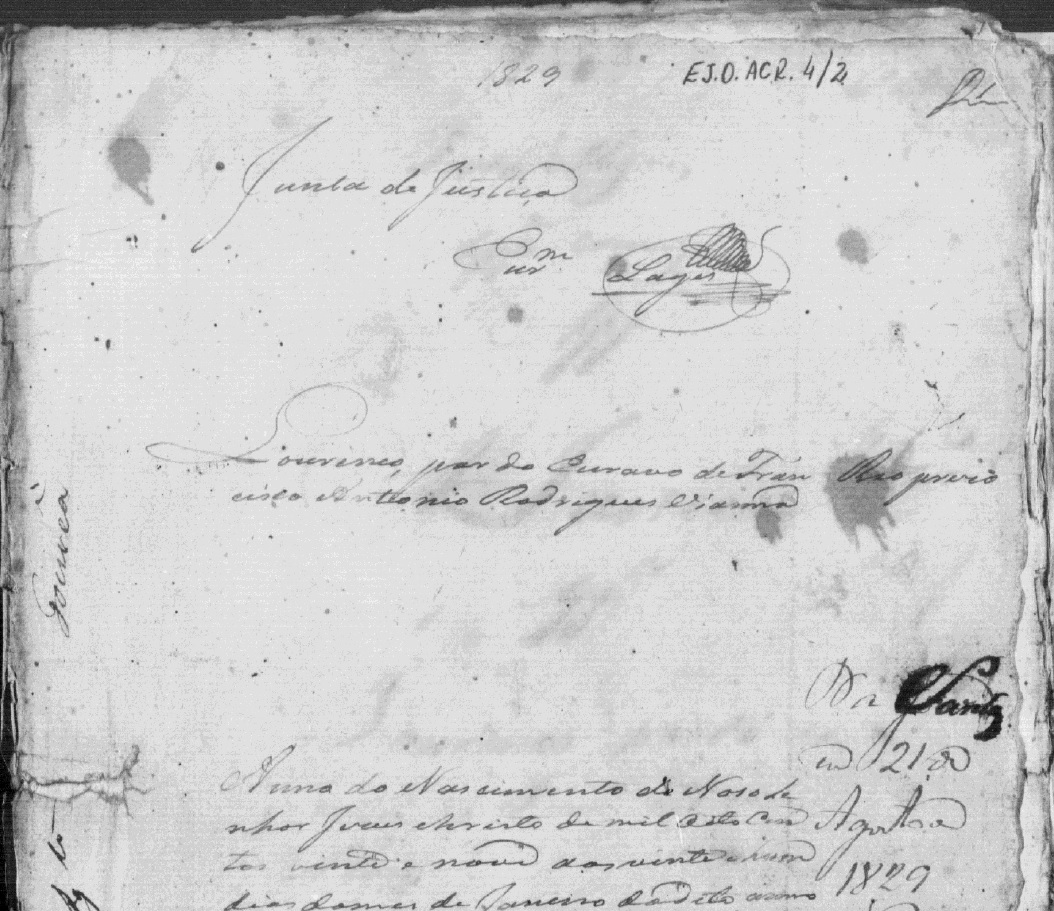 1829
E J.O. ACR. 4/2
Junta de Justiça
Lages
Lourenco, pardo Escravo de Fran Reo prezo
cisco Antonio Rodrigues Vianna
Gouvea
Dor Santos
em 21 de
Agosto de
1829
Anno do Nascimento de Noso Se
nhor Jezus christo de mil oito Cen
tos vinte e nove aos vinte e hum
dias do mes de Janeiro do dito anno